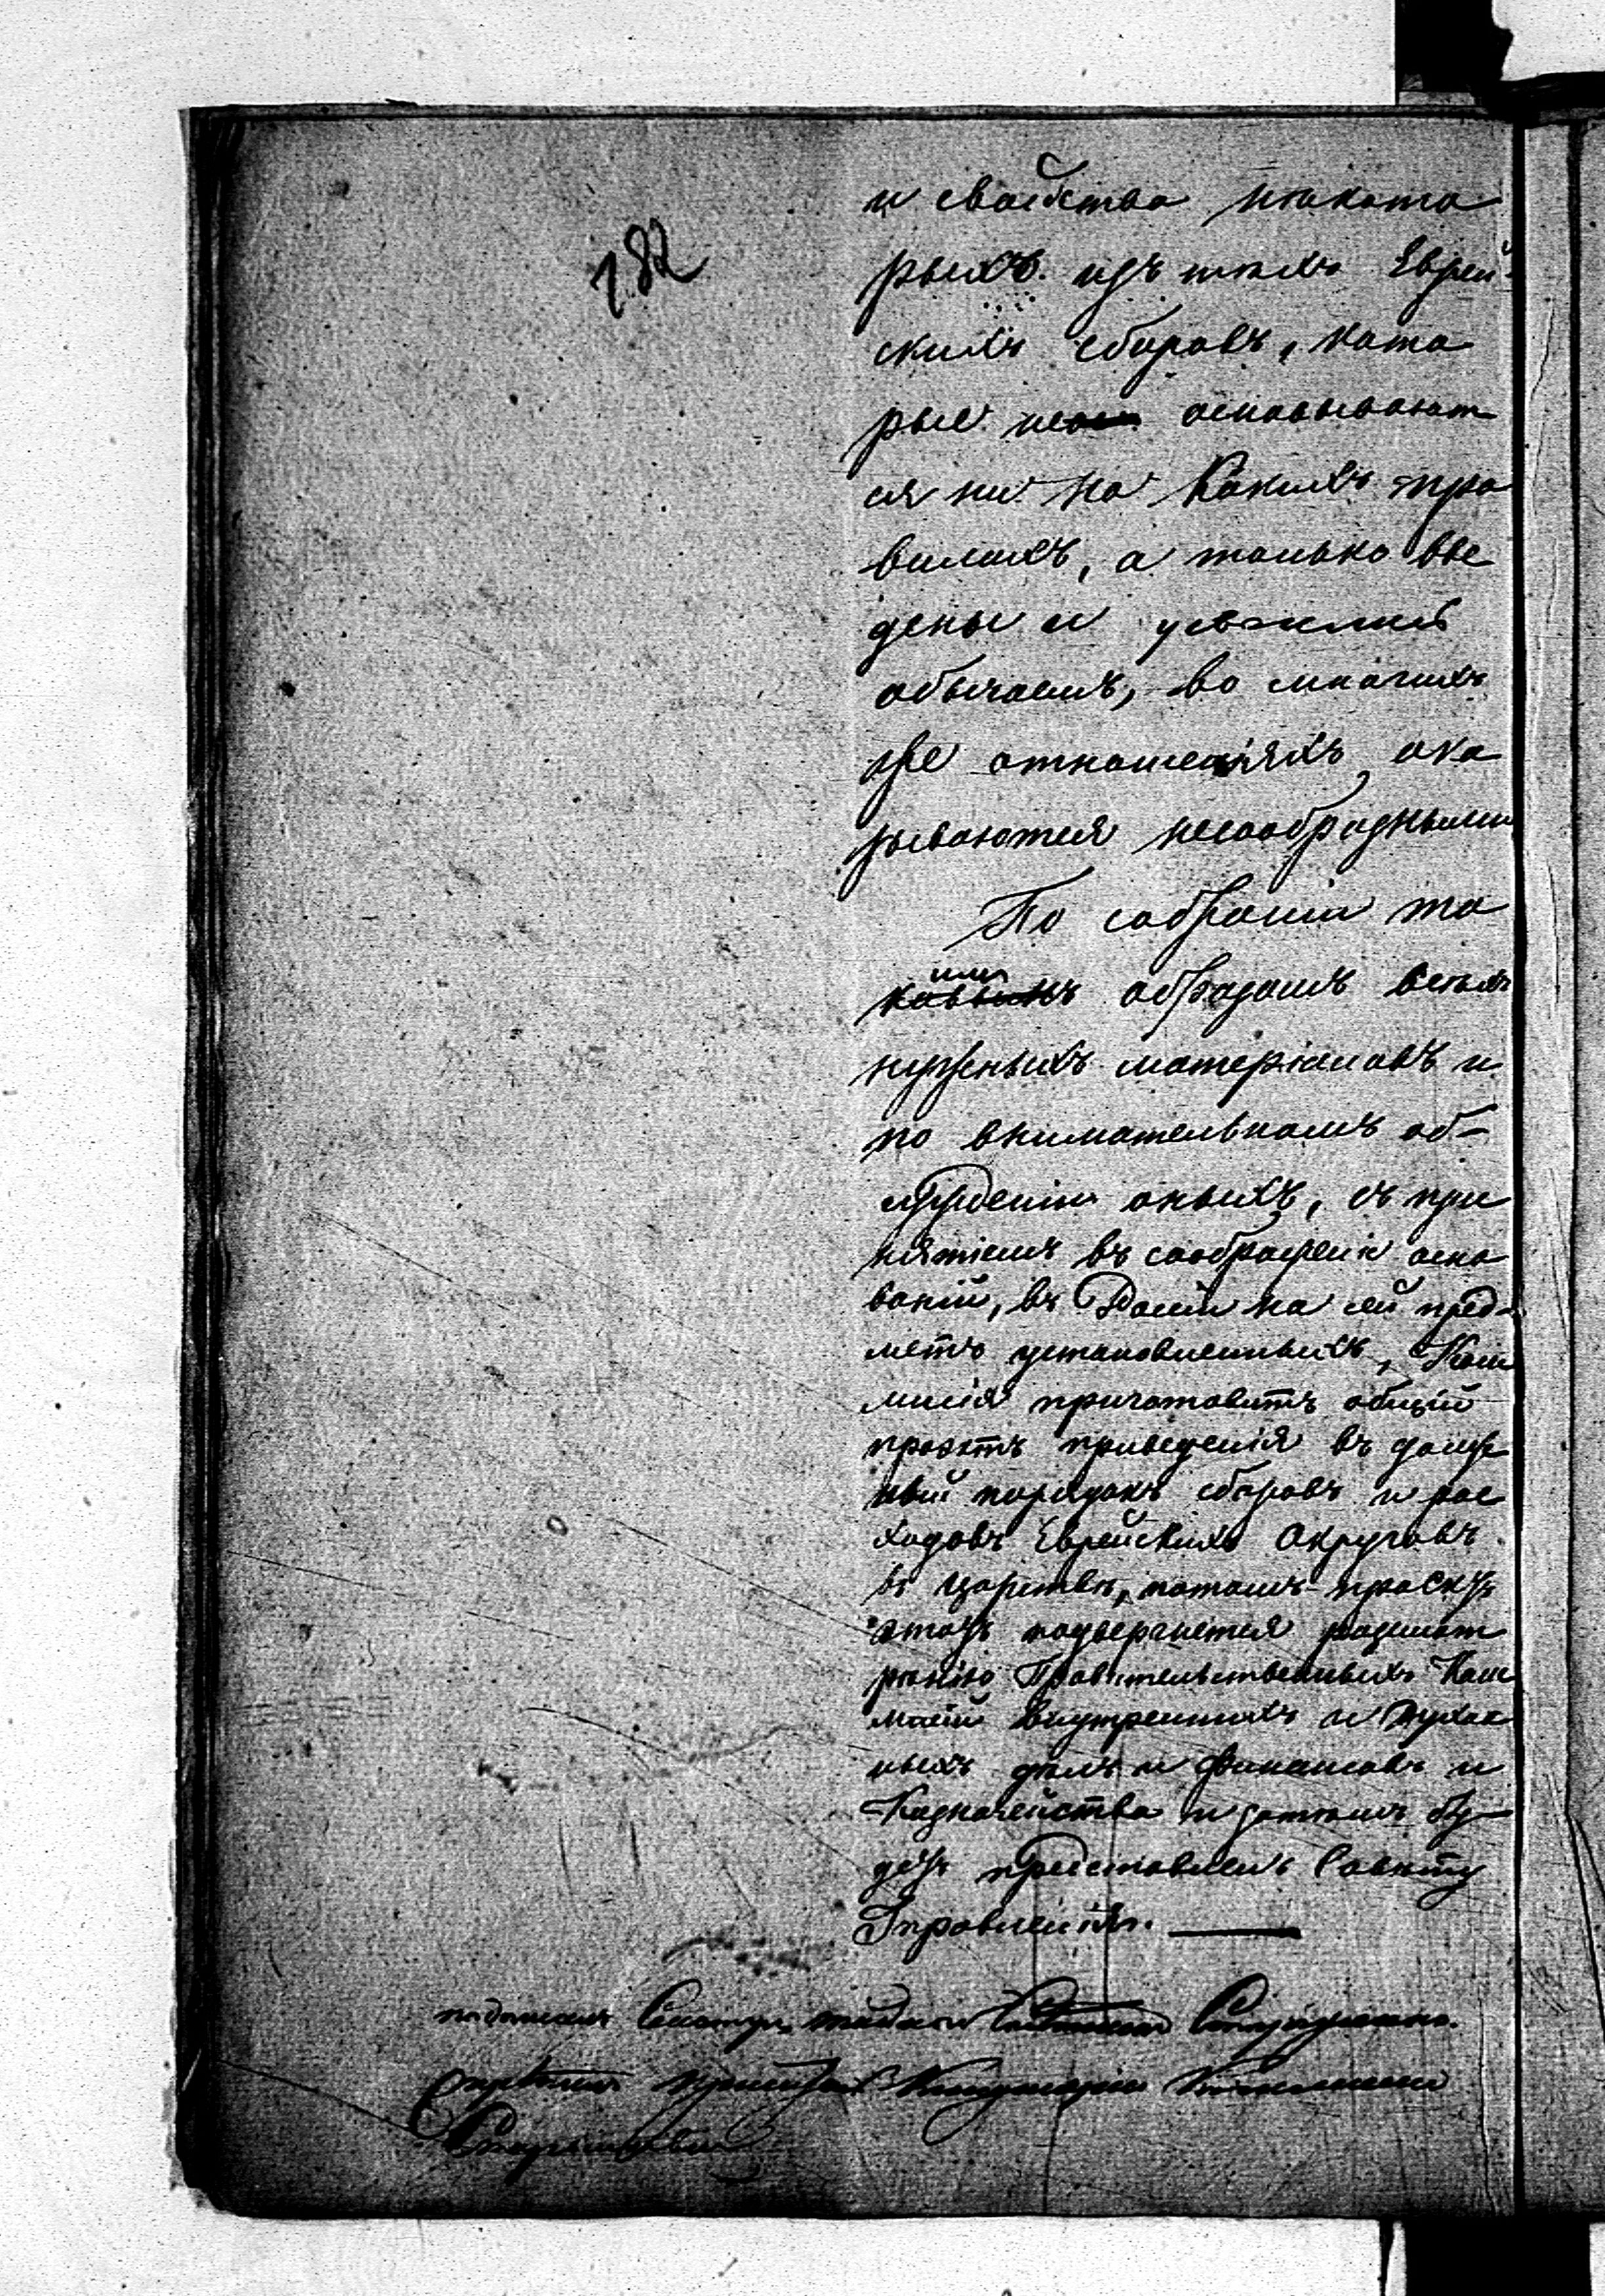 182
и свойства нѣкото
рыхъ изъ тѣхъ Еврей-
скихъ сборовъ, кото
рые не основывают
ся ни на какихъ пра
вилахъ, а только вве
дены и
обычаемъ, во многихъ
же отношеніяхъ ока
зываются несообразными
По собраніи та
кимъ образомъ всѣхъ
нужныхъ матеріаловъ и
по внимательномъ об-
сужденіи оныхъ, съ при
нятіемъ въ соображеніе осно
ваній, въ на сей пред-
метъ установленныхъ, Ком
мисія приготовитъ общій
проэктъ приведенія въ долж
ный порядокъ сборовъ и рас
ходовъ Еврейскихъ Округовъ
въ Царствѣ, потомъ проэктъ
этотъ подвергнется разсмот
рѣнію Правительственныхъ Ком
мисій Внутреннихъ и Духов
ныхъ дѣлъ и Финансовъ и
Казначейства и затѣмъ бу-
детъ представленъ Совѣту
Управленія.